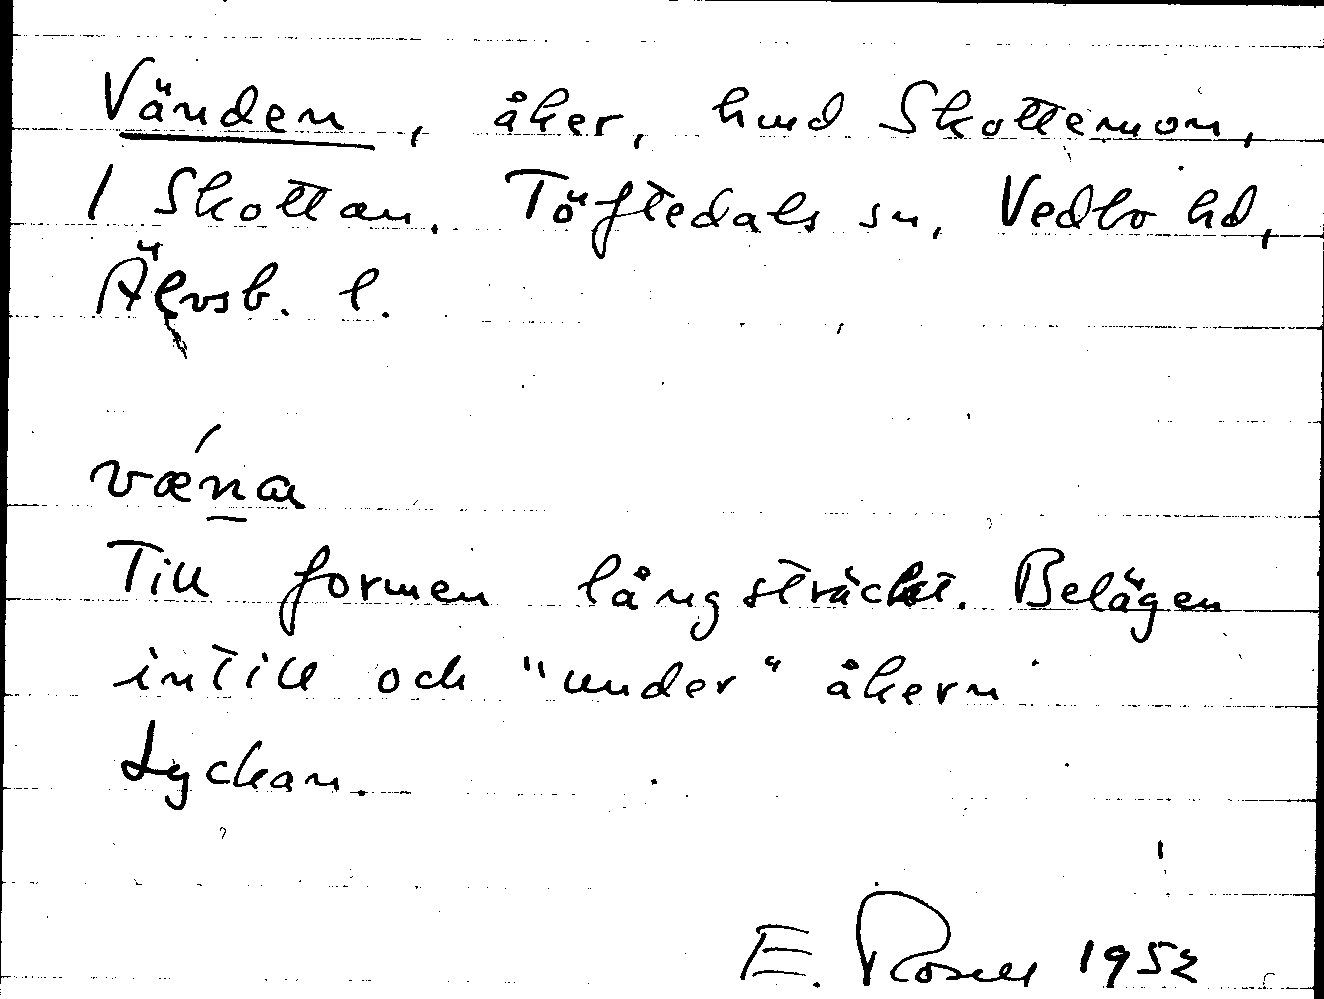 Vänden, åker, hmd Skottemon,
1 Skottan. Töftedals sn, Vedbo hd,
Älvsb. l.
vǽna
Till formen långsträckt. Belägen
intill och "under" åkern
Lyckan.
E. Rosell 1952